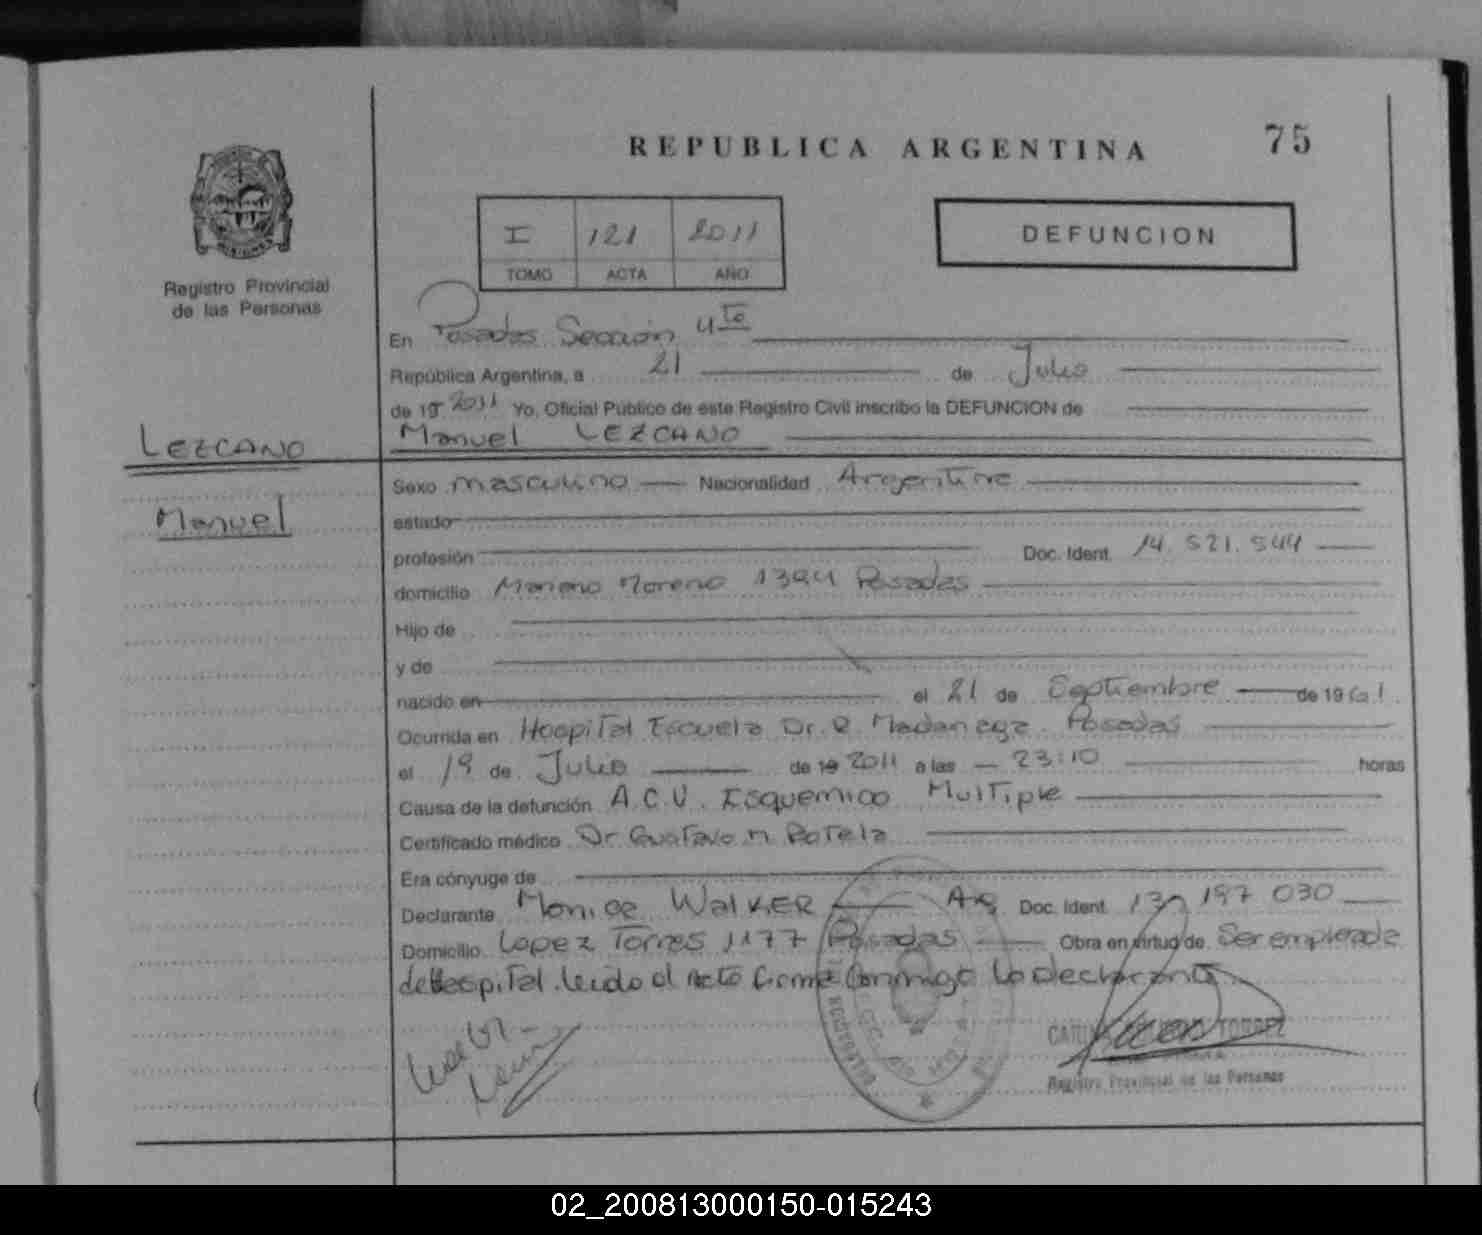 REPUBLICA ARGENTINA
75
I 121 2011
TOMO ACTA AÑO
DEFUNCION
Registro Provincial
de las Personas
En Posadas Sección 4ta
República Argentina, a 21 de Julio
de 19 2011 Yo, Oficial Público de este Registro Civil inscribo la DEFUNCION de
LEZCANO
Manuel LEZCANO
Manuel
Sexo masculino Nacionalidad Argentina
estado
profesión Doc. Ident. 14.521.544
domicilio Mariano Moreno 1394 Posadas
Hijo de
y de
nacido en el 21 de Septiembre de 1961
Ocurrida en Hospital Escuela Dr. R. Madariaga Posadas
el 19 de Julio de 19 2011 a las 23:10 horas
Causa de la defunción A.C.V. Isquemico Multiple
Certificado médico Dr Gustavo N Rotela
Era cónyuge de
Declarante Monica WALKER Arg Doc. Ident. 13 197 030
Domicilio Lopez Torres 1177 Posadas Obra en virtud de Ser empleada
del Hospital. leido el acto firma conmigo la declarante
TORREZ
Registro Provincial de las Personas
02_200813000150-015243